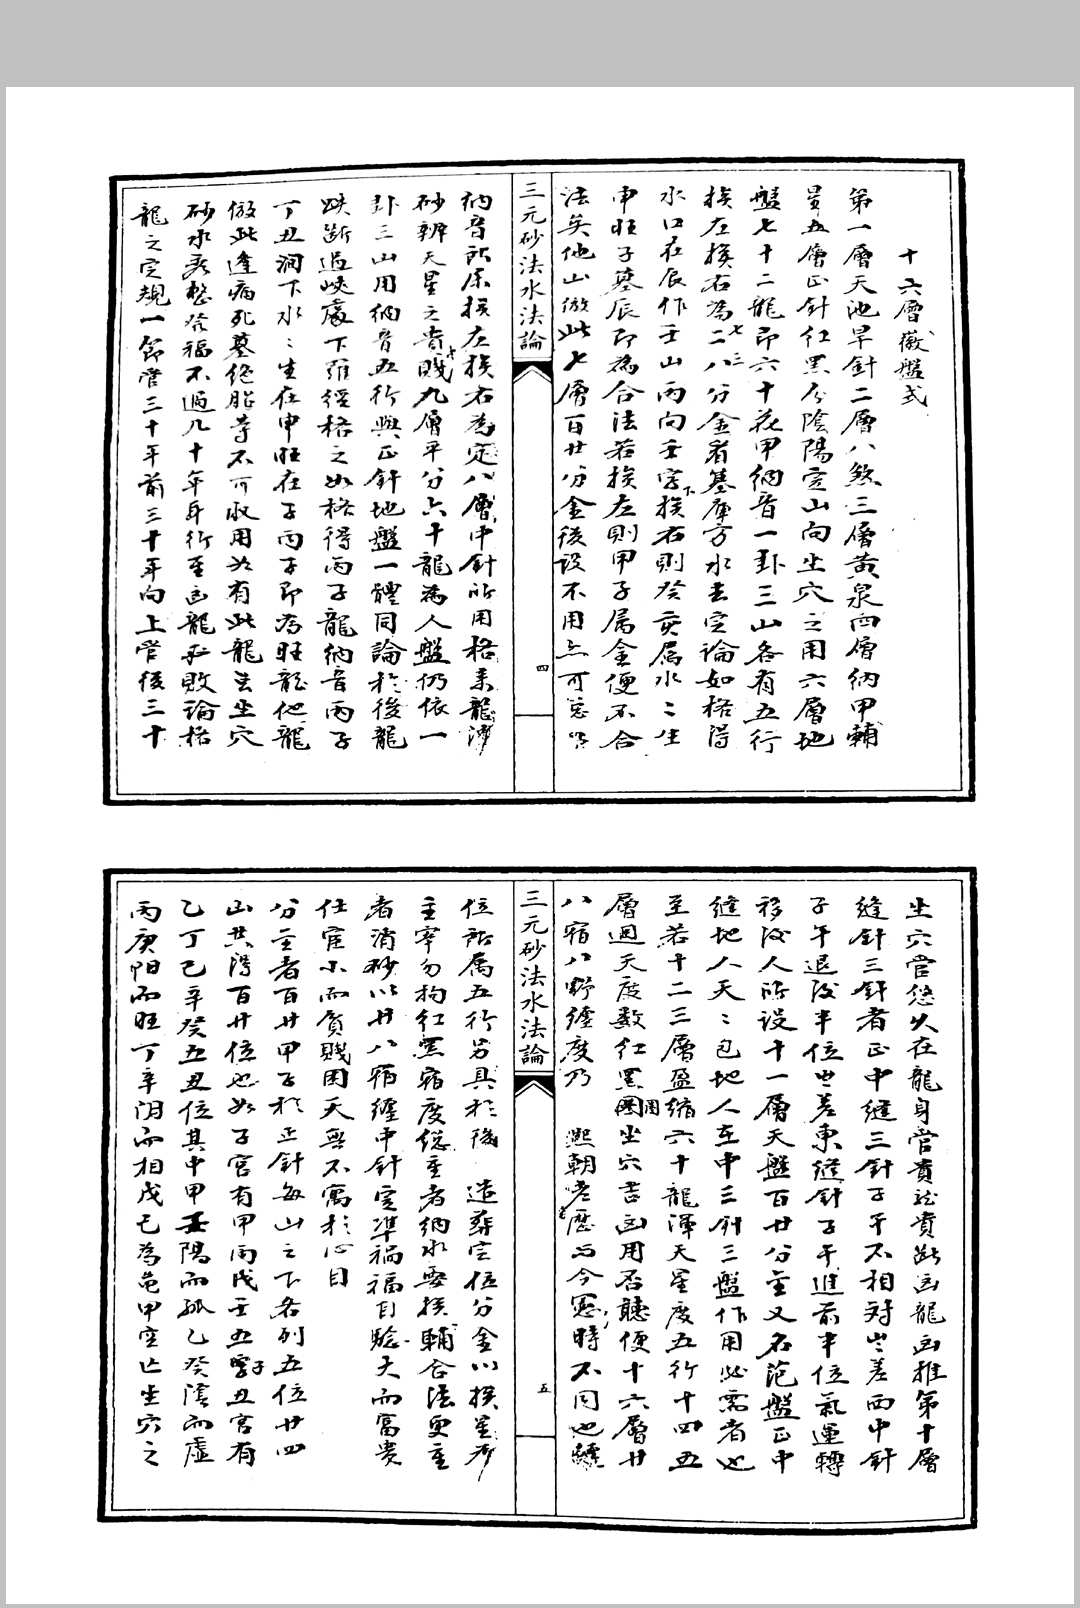 十六層徽盤式
第一層天池旱針二層八煞三層黃泉四層納甲輔
星五層正針紅黑分陰陽定山向坐穴之用六層地
盤七十二龍即六十花甲納音一卦三山各有五行
挨左挨右為二八三七分金看墓庫方水去定論如格得
水口在辰作壬山丙向壬字下挨右則癸亥屬水二生
申旺子墓辰即為合法若挨左則甲子屬金便不合
法矣他山倣此七層百廿分金後設不用亦可
三元砂法水法論
四
納音所屬挨左挨右為定八層中針所用格來龍
砂辨天星之貴賤九層平分六十龍為人盤仍依一
卦三山用納音五行與正針地盤一體同論於後龍
跌斷過峽處下羅經格之如格得丙子龍納音丙子
丁丑澗下水二生在申旺在子丙子即為旺龍他龍
倣此逢病死墓絕胎等不可取用如有此龍去坐穴
砂水為整發福不過几十年身行至凶龍必敗論格
龍之定規一節管三十年前三十年向上管後三十
坐穴管悠久在龍身管貴龍貴此凶龍凶推第十層
縫針三針者正中縫三針子午不相對岂差西中針
子午退後半位岂差東縫針子午進前半位氣運轉
移後人所設十一層天盤百廿分金又名范盤正中
縫地人天二包地人在中三針三盤作用必需者也
至若十二三層盈縮六十龍渾天星度五行十四五
層週天度數紅黑圈坐穴吉凶用否聽便十六層廿
八宿八野纏度乃 熙朝考歷与今憲時不同也
三元砂法水法論
五
位所屬五行另具於後 造葬定位分金以挨星为
主宰勿拘紅黑宿度總主者納水要挨輔合法更主
者消砂以廿八宿纏中針定準禍福自驗大而富贵
仕宦小而貧賤困夭無不寓於心目
分金者百廿甲子於正針每山之下各列五位廿四
山共得百廿位也如子宮有甲丙戊壬五子丑宮有
乙丁己辛癸五丑位其中甲壬陽而孤乙癸陰而虛
丙庚陽而旺丁辛陰而相戊己為龜甲空亡坐穴之